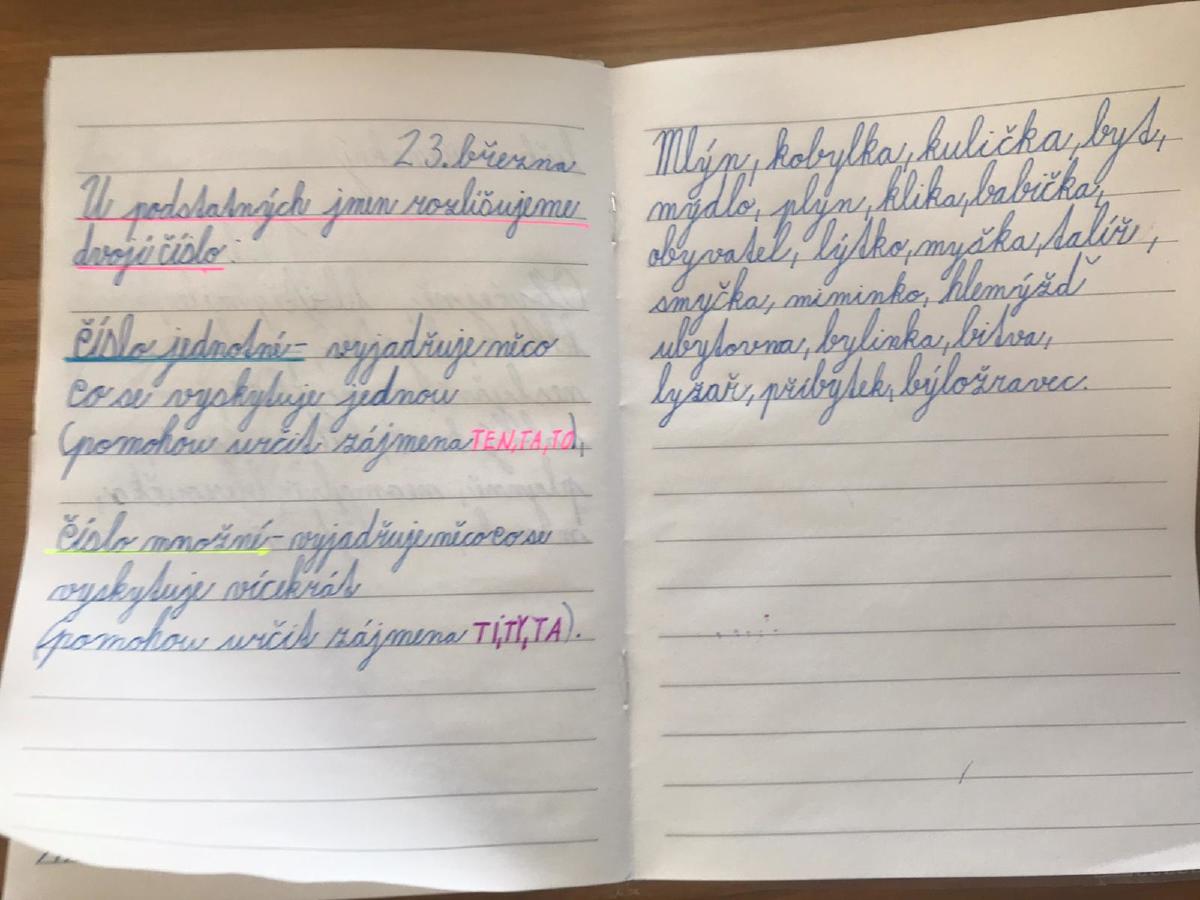 23. března
U podstatných jmen rozlišujeme
dvojí číslo:
číslo jednotné - vyjadřuje něco
co se vyskytuje jednou
(pomohou určit zájmena TEN, TA, TO),
číslo množné - vyjadřuje něco co se
vyskytuje vícekrát
(pomohou určit zájmena TI, TY, TA).
Mlýn, kobylka, kulička, byt,
mýdlo, plyn, klika, babička,
obyvatel, lýtko, myška, talíř,
smyčka, miminko, hlemýžď
ubytovna, bylinka, bitva,
lyžař, příbytek, býložravec.